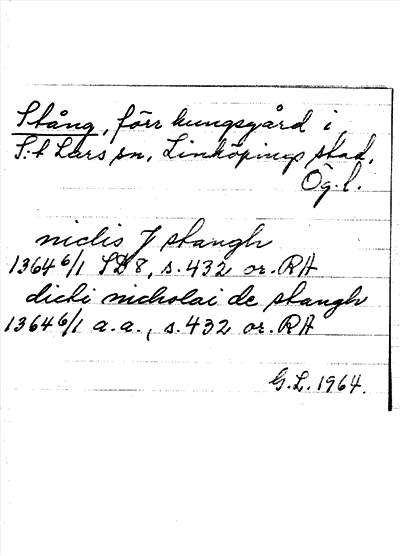 Stång, förr kungsgård i
S:t Lars sn, Linköpings stad,
Ög.l.
niclis J stangh
1364 6/1 SD 8, s. 432 or. RA
dicti nicholai de stangh
1364 6/1 a.a., s. 432 or. RA
G.L. 1964.